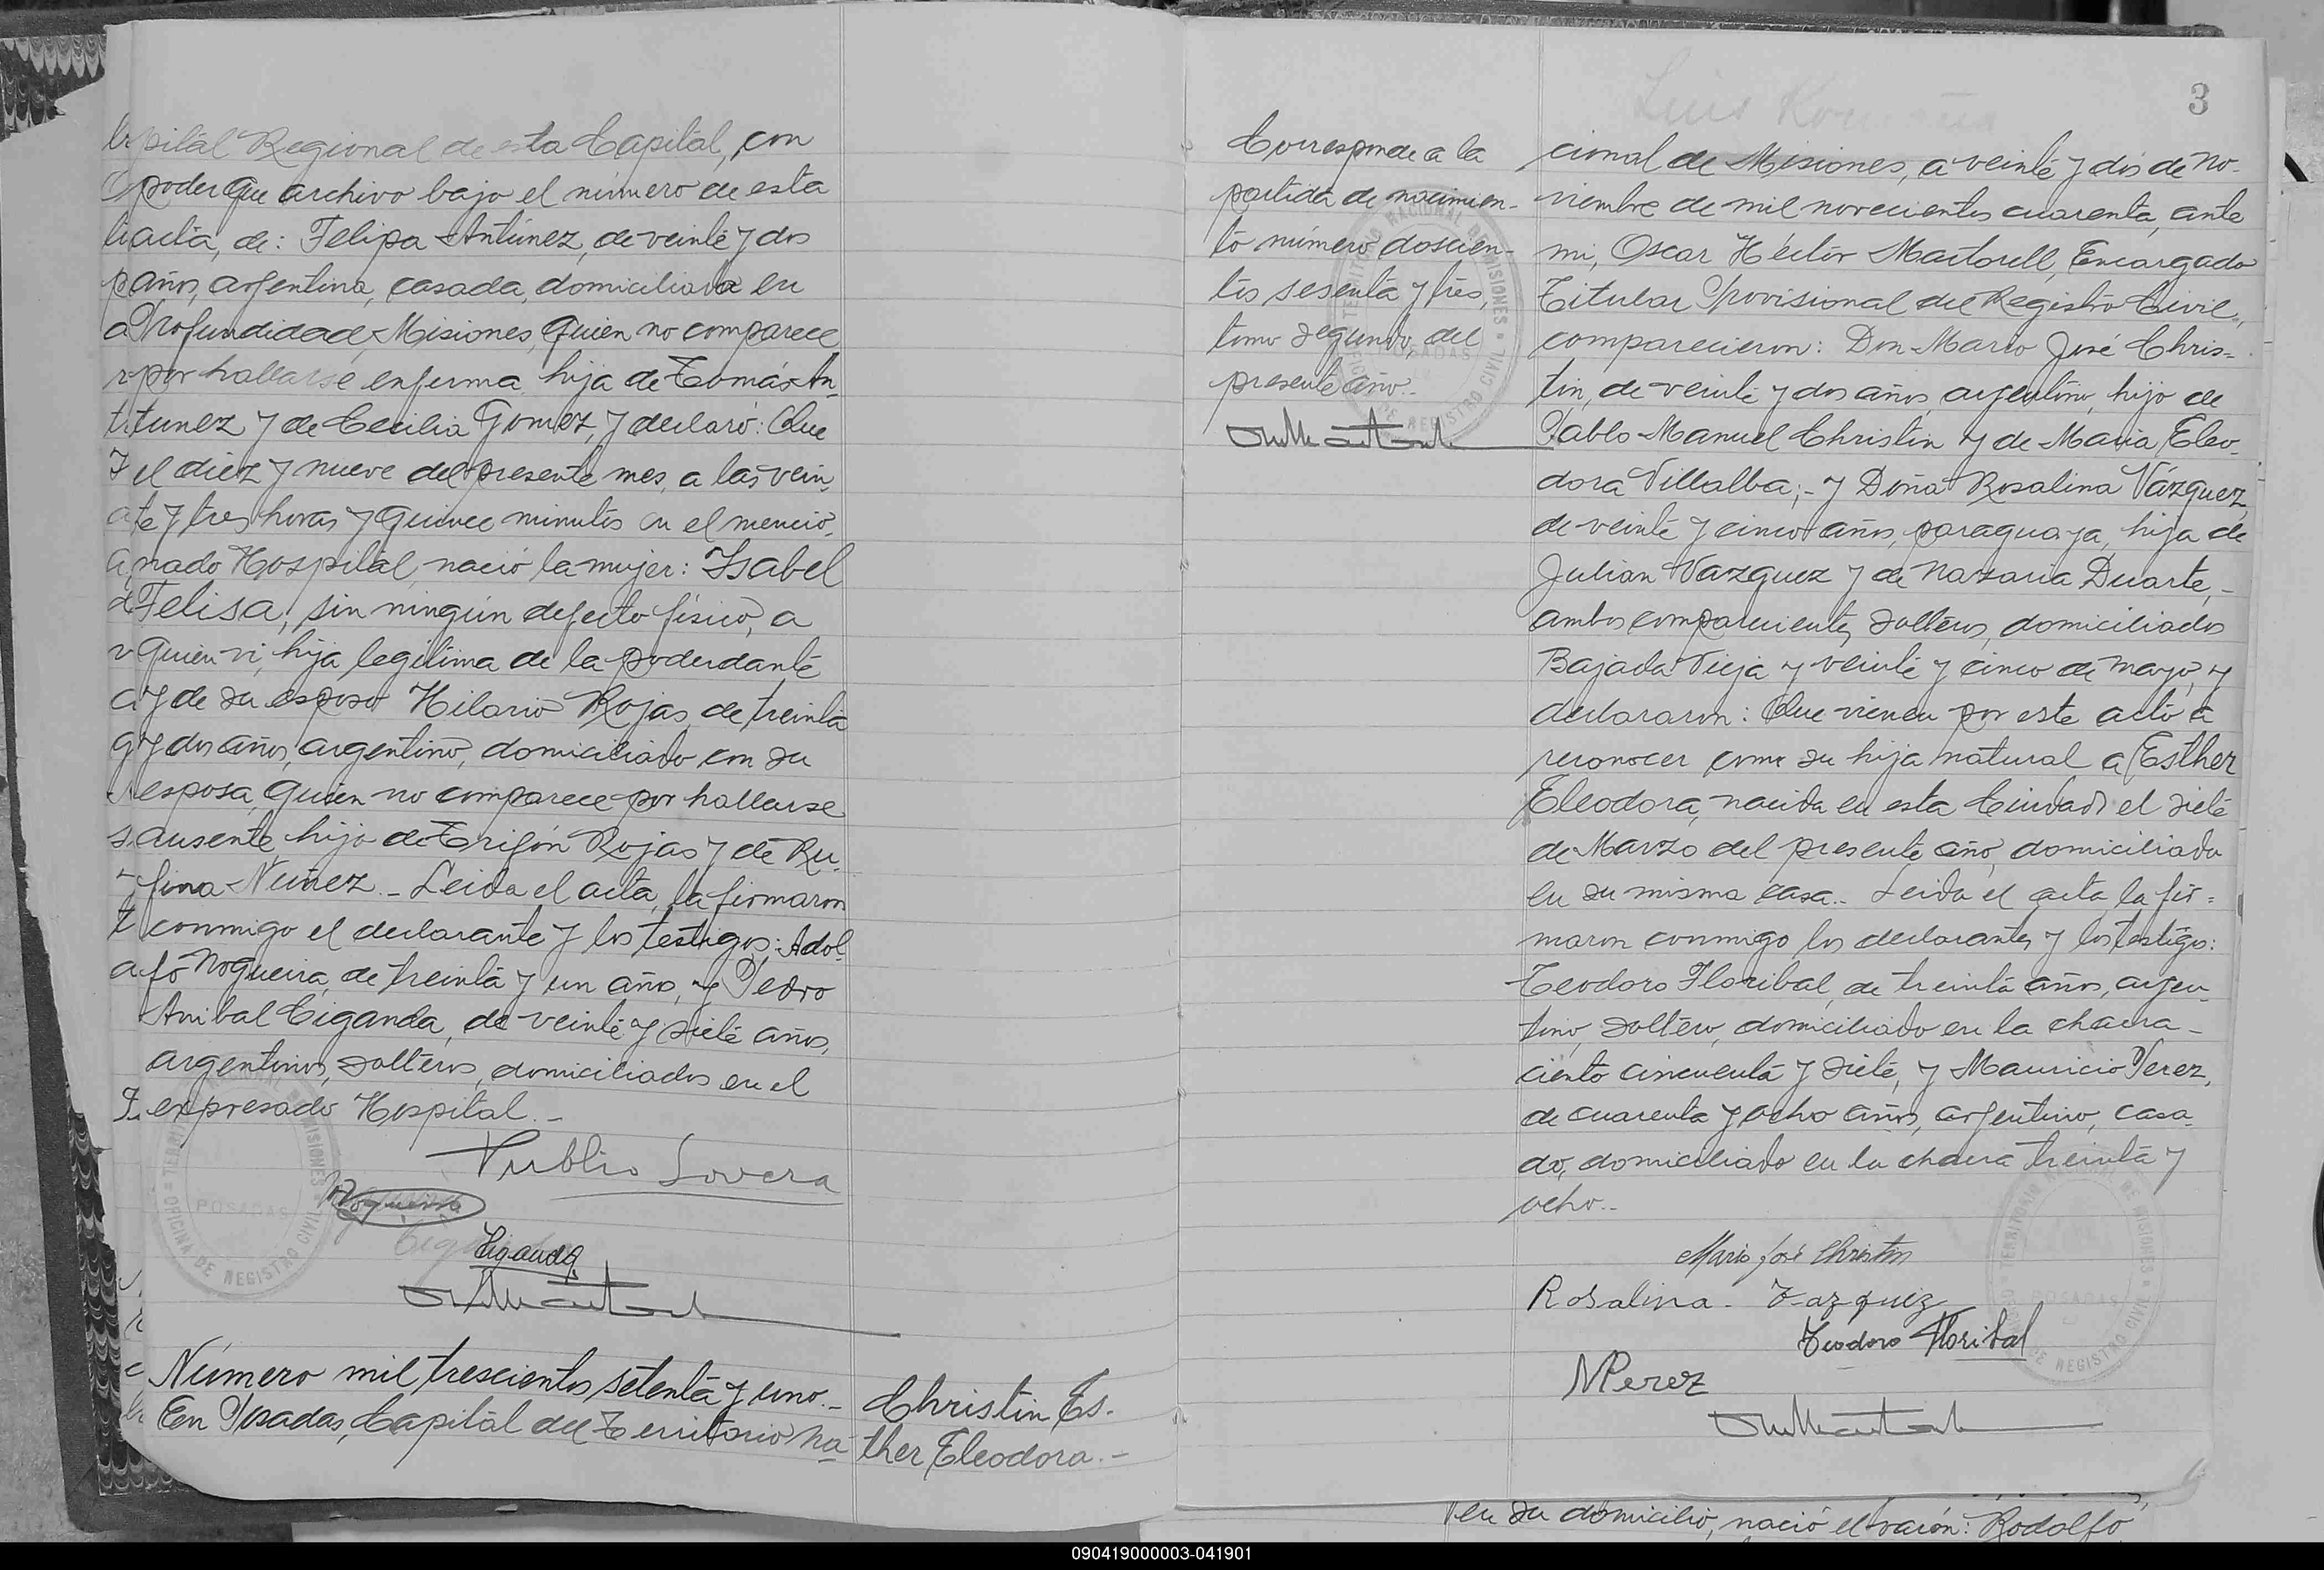 pital Regional de esta Capital, con
poder que archivo bajo el número de esta
acta, de: Felipa Antúnez, de veinte y dos
años, argentina, casada, domiciliada en
Profundidad, Misiones, quien no comparece
por hallarse enferma, hija de Tomás An-
tunez y de Cecilia Gomez, y declaró: Que
el diez y nueve del presente mes, a las vein-
te y tres horas y quince minutos en el mencio-
nado Hospital, nació la mujer: Isabel
Felisa, sin ningún defecto físico, a
quien vi, hija legítima de la poderdante
y de su esposo Hilario Rojas, de treinta
y dos años, argentino, domiciliado con su
esposa, quien no comparece por hallarse
ausente, hijo de Trifón Rojas y de Ru-
fina Nuñez.- Leida el acta, la firmaron
conmigo el declarante y los testigos: Adol-
fo Nogueira, de treinta y un año, y Pedro
Anibal Ciganda, de veinte y siete años,
argentinos, solteros, domiciliados en el
expresado Hospital.-
Publio Lovera
Nogueira
Ciganda
TERRITORIO NACIONAL DE MISIONES
POSADAS
OFICINA DE REGISTRO CIVIL
Número mil trescientos setenta y uno.-
En Posadas, Capital del Territorio Na-
Christin Es-
ther Eleodora.-
3
Luis
Corresponde a la
partida de nacimien-
to número doscien-
tos sesenta y tres,
tomo segundo, del
presente año.-
TERRITORIO NACIONAL DE MISIONES
POSADAS
OFICINA DE REGISTRO CIVIL
cional de Misiones, a veinte y dos de No-
viembre de mil novecientos cuarenta, ante
mi, Oscar Héctor Martorell, Encargado
Titular Provisional del Registro Civil,
comparecieron: Don Mario José Chris-
tin, de veinte y dos años, argentino, hijo de
Pablo Manuel Christin y de Maria Eleo-
dora Villalba;- y Doña Rosalina Vázquez,
de veinte y cinco años, paraguaya, hija de
Julian Vazquez y de Nazaria Duarte,-
ambos comparecientes, solteros, domiciliados
Bajada Vieja y veinte y cinco de mayo, y
declararon: Que vienen por este acto a
reconocer como su hija natural a Esther
Eleodora, nacida en esta Ciudad el siete
de Marzo del presente año, domiciliada
en su misma casa.- Leida el acta la fir-
maron conmigo los declarantes y los testigos:
Teodoro Floribal, de treinta años, argen-
tino, soltero, domiciliado en la chacra-
ciento cincuenta y siete, y Mauricio Perez,
de cuarenta y ocho años, argentino, casa-
do, domiciliado en la chacra treinta y
ocho.-
Mario José Christin
Rosalina Vazquez
Teodoro Floribal
MPerez
TERRITORIO NACIONAL DE MISIONES
POSADAS
OFICINA DE REGISTRO CIVIL
en su domicilio, nació el varón: Rodolfo
090419000003-041901